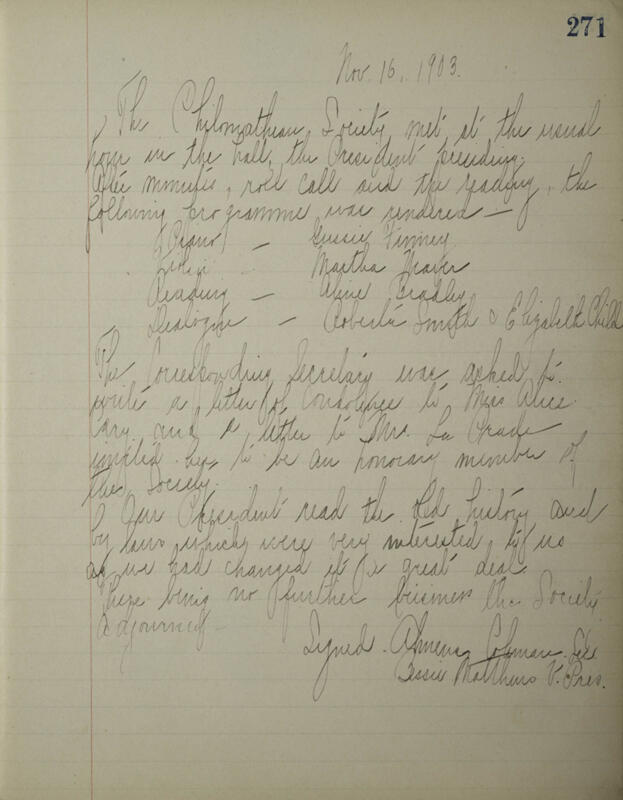 271
Nov. 16, 1903.
The Philomathean Society met at the usual
hour in the hall, the President presiding.
After minutes, roll call and the reading, the
following programme was rendered —
Piano — Gussie Finney
Martha
Reading — Alice Bradley
Dialogue — Roberta Smith & Elizabeth Child
The Corresponding Secretary was asked to
write a letter of condolence to Miss Alice
Cary and a letter to Mrs. La Crade
her to be an honorary member of
the Society.
Our President read the old history and
by laws which were very interested to us
as we had changed it a great deal.
There being no further business the Society
adjourned —
Signed Almena Sec
Bessie Matthews V. Pres.